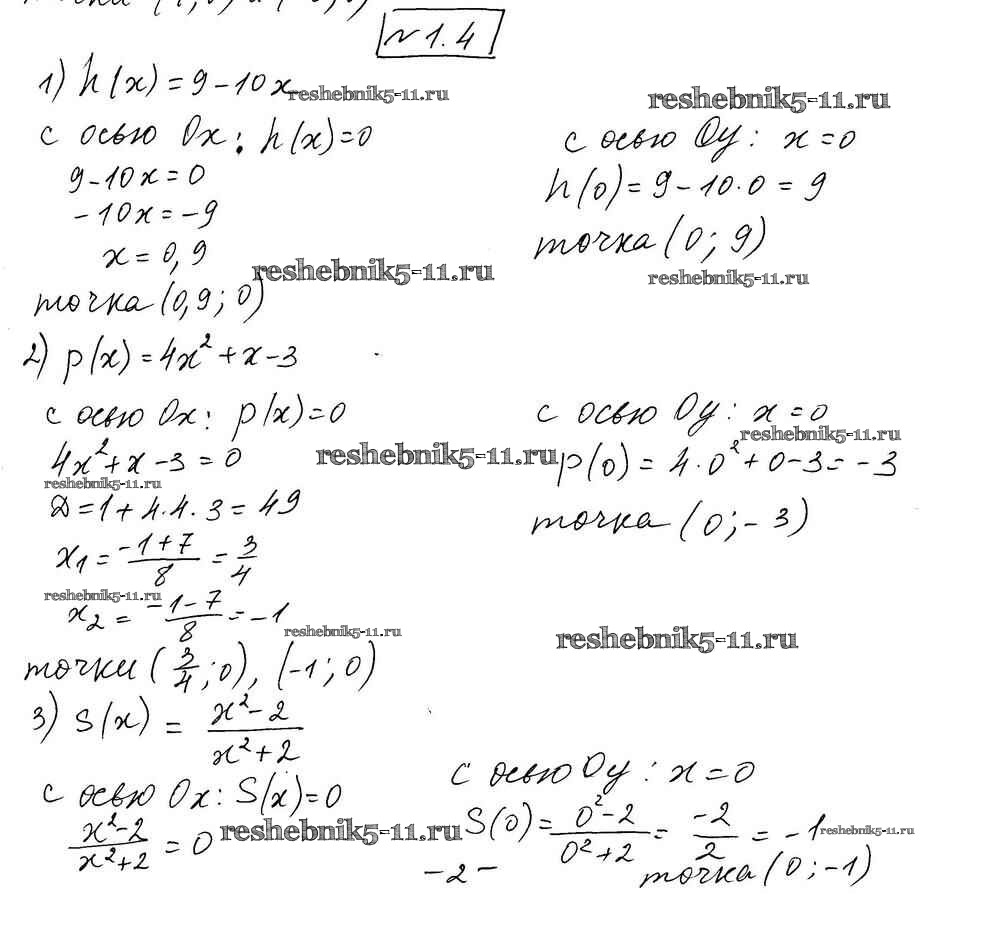 №1.4
1) h(x) = 9 - 10x
reshebnik5-11.ru
reshebnik5-11.ru
с осью Ox: h(x) = 0
9 - 10x = 0
- 10x = -9
x = 0,9
точка (0,9; 0)
с осью Oy: x = 0
h(0) = 9 - 10·0 = 9
точка (0; 9)
reshebnik5-11.ru
reshebnik5-11.ru
2) p(x) = 4x² + x - 3
с осью Ox: p(x) = 0
4x² + x - 3 = 0
reshebnik5-11.ru
Д = 1 + 4·4·3 = 49
x₁ = (-1+7)/8 = 3/4
reshebnik5-11.ru
x₂ = (-1-7)/8 = -1
reshebnik5-11.ru
точки (3/4; 0), (-1; 0)
с осью Oy: x = 0
reshebnik5-11.ru
reshebnik5-11.ru
p(0) = 4·0² + 0 - 3 = -3
точка (0; -3)
reshebnik5-11.ru
3) S(x) = (x² - 2)/(x² + 2)
с осью Ox: S(x) = 0
(x² - 2)/(x² + 2) = 0
reshebnik5-11.ru
с осью Oy: x = 0
S(0) = (0² - 2)/(0² + 2) = -2/2 = -1
reshebnik5-11.ru
точка (0; -1)
- 2 -